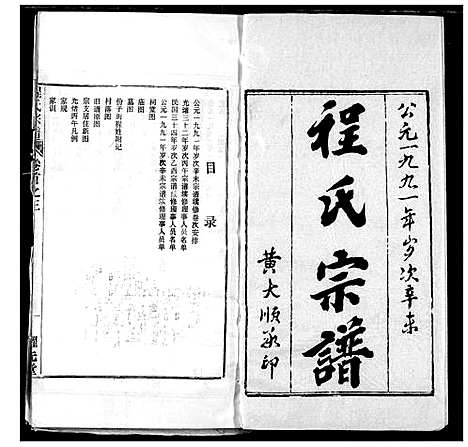 公元一九九一年岁次辛未
程氏宗譜
黄大顺承印
目录
公元一九九一年岁次辛未宗谱续修卷次安排
光绪三十二年岁次丙午宗谱续修理事人员名单
民国三十四年岁次乙酉宗谱续修理事人员名单
公元一九九一年岁次辛未宗谱续修理事人员名单
祠堂图
庙图
墓图
份子町程姓附记
村落图
旧谱原图
宗支居住新图
光绪丙午凡例
家规
家训